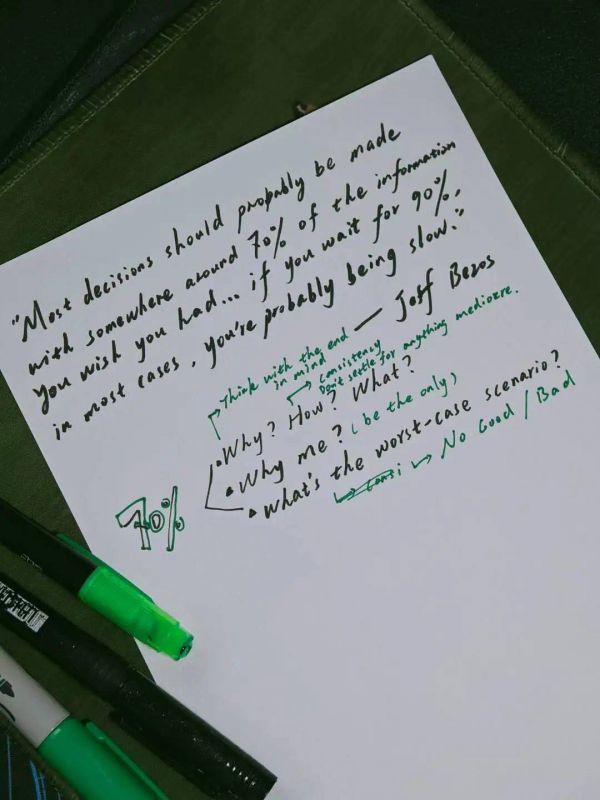 "Most decisions should probably be made
with somewhere around 70% of the information
you wish you had... if you wait for 90%,
in most cases, you're probably being slow."
— Jesf Bezos
Think with the end
in mind
Consistency
Don't settle for anything mediocre.
• Why? How? What?
• Why me? (be the only)
• What's the worst-case scenario?
Consi No Good / Bad
70%